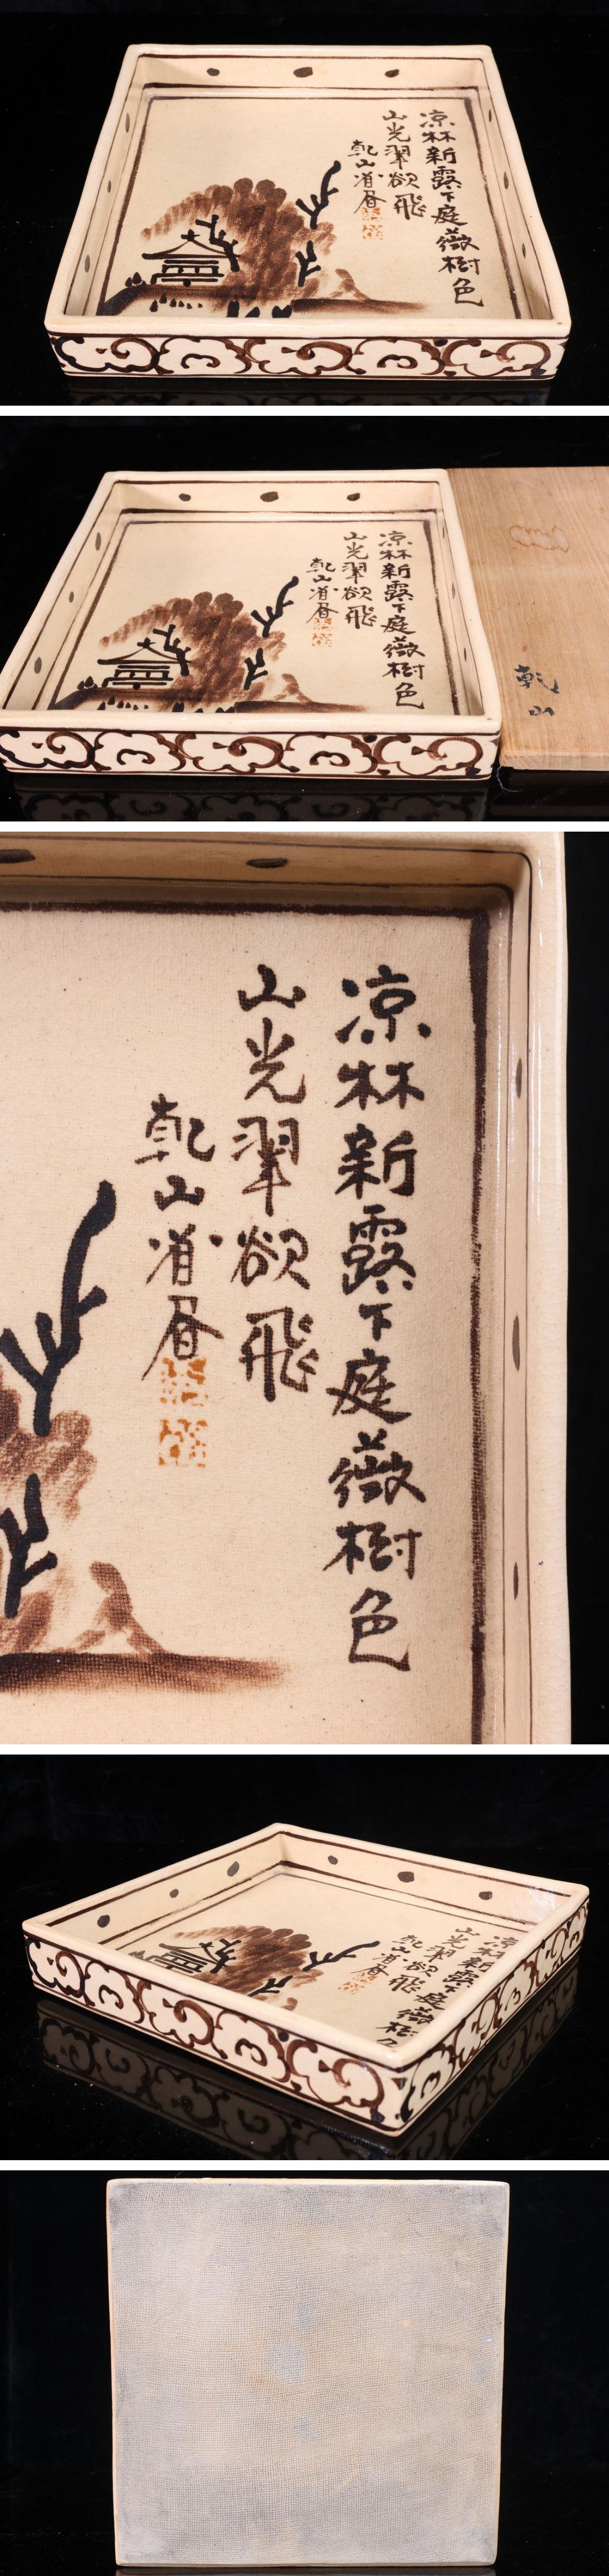 凉林新露下庭薇樹色
山光翠欲飛
乾山省書
凉林新露下庭薇樹色
山光翠欲飛
乾山省書
乾山
凉林新露下庭薇樹色
山光翠欲飛
乾山省書
凉林新露下庭薇
山光翠欲飛
乾山省書